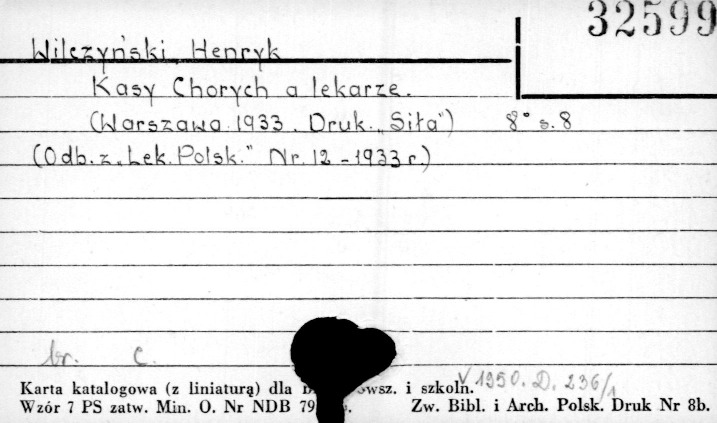 32599
Wilczyński, Henryk
Kasy Chorych a lekarze.
(Warszawa 1933. Druk. „Siła") 8° s. 8
(Odb. z „Lek. Polsk." Nr. 12 - 1933 r.)
br. c.
V 1950. D. 236/1
Karta katalogowa (z liniaturą) dla i szkoln.
Wzór 7 PS zatw. Min. O. Nr NDB 79 Zw. Bibl. i Arch. Polsk. Druk Nr 8b.